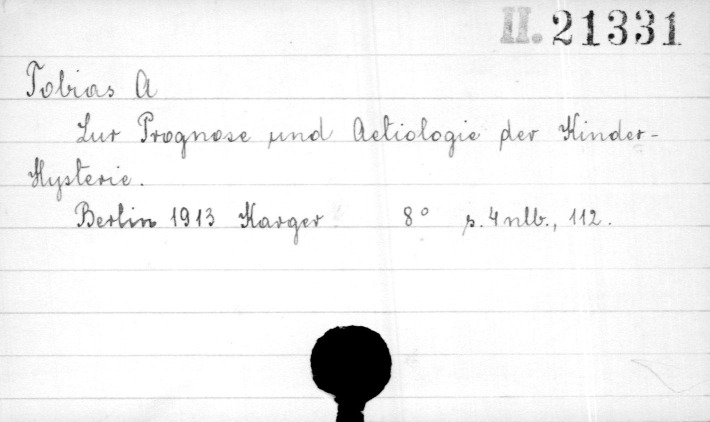 II. 21331
Tobias A
Zur Prognose und Aetiologie der Kinder-
Hysterie.
Berlin 1913 Karger 8° s. 4 nlb., 112.